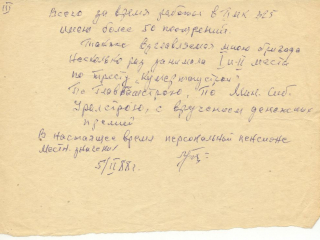 III
Всего за время работы в БМК 725
имею более 50 поощрений.
Также возглавляемая мною бригада
несколько раз занимала I и II места
по тресту
По Главвостстрою, по Мин. Сиб.
Уралстрою, с вручением денежных
премий
В настоящее время персональный пенсионер
местн. значения
5/II 88 г.